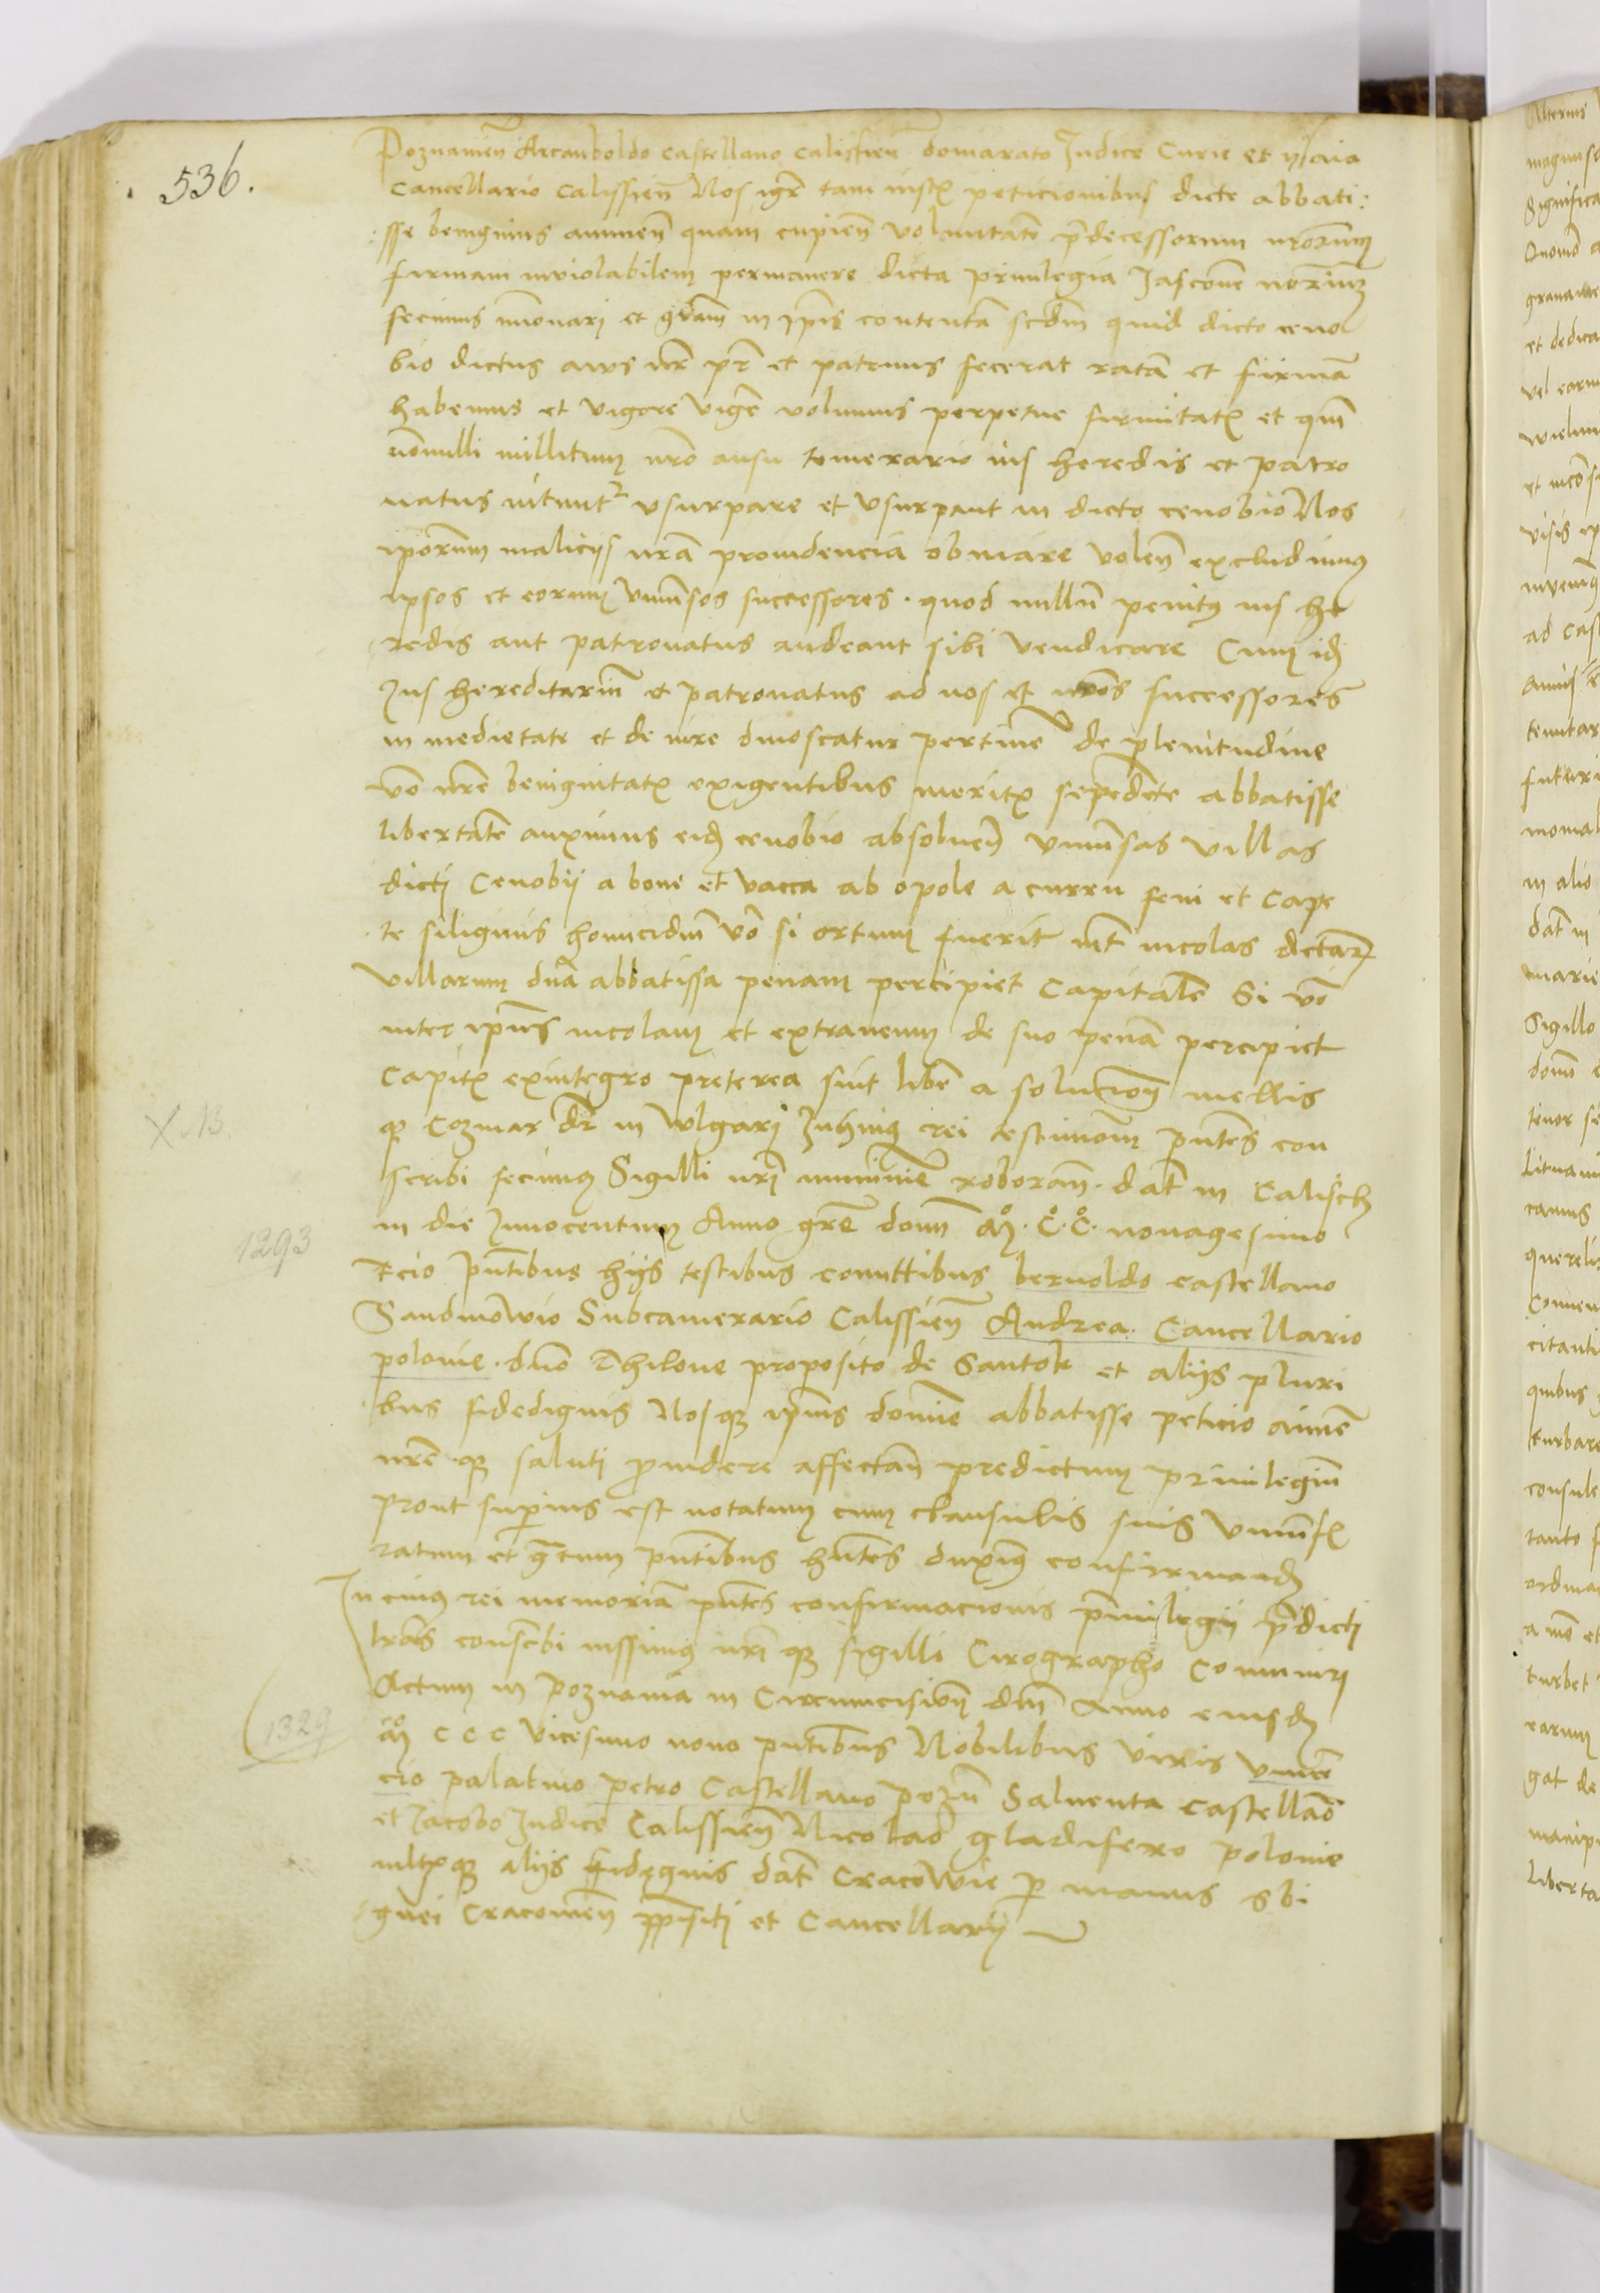 536.
Poznanien Arcanboldo castellano calissien domarato Judice Curie et ysaia
Cancellario calissien Nos igr tam iustis peticionibus dicte abbati:
:sse benignius annuen quam cupien voluntate predecessorum nrorum
firmam inviolabilem permanere dicta privilegia Jasconem nostrum
fecimus innovari et gram in ipis contentam scdm quid dicto ceno
bio dictus avus nr pr et patruus fecerat ratam et firma
habemus et vigore vigere volumus perpetue firmitatis et qm
nonnulli millitum nro ausu temerario ius heredis et patro
natus nituntr usurpare et usurpant in dicto cenobio Nos
iporum maliciis nra providencia obviare volen excludimus
ipsos et eorum universos successores. quod nullu penitus ius he
redis aut patronatus audeant sibi vendicare Cum id
Jus hereditarium et patronatus ad nos et nros successores
in medietate et de iure dinoscatur pertinere de plenitudine
vo nre benignitatis exigentibus meritis sepedicte abbatisse
libertate auximus eid cenobio absolven universas villas
dicti Cenobii a bove et vacca ab opole a curru feni et Cape
te siliginis homicidium vo si ortum fuerit int incolas dictar
villarum dna abbatissa penam percipiet Capitale Si vo
inter ipius incolam et extraneum de suo pena percipiet
Capitis exintegro preterea sint libe a solucione mellis
q Cozmar dr in vulgari Juhius rei testimonium pntes con
scribi fecimus Sigilli nri munimine roboran. dat in Calisch
in die Innocentum Anno gre domi Mo. Co. Co. nonagesimo
X NB.
1293
Tercio pntibus hiis testibus comittibus bernoldo castellano
Sandivowio Subcamerario Calissien Andrea Cancellario
polonie. dno Thilone preposito de Santok et aliis pluri
bus fidedignis Nosq ipius domine abbatisse peticio anime
nre q saluti providere affectan predictum privilegium
prout superius est notatum cum clausulis suis universis
ratum et gratum pntibus hntes duximus confirmand
In cuius rei memoria pntes confirmacionis privilegii predicti
lras conscribi iussimus nri q sigilli Cirographo Communiri
Actum in Poznania in Circumcisione dni Anno eiusd
1329
Mo C C C vicesimo nono pntibus Nobilibus viris vincen
cio palatino petro Castellano pozn Salventa castellano
et Jacobo Judice Calissien Nicolao gladifero polonie
mltisq aliis fidegnis dat Cracowie per manus Sbi
gnei Cracovien ppositi et Cancellarii